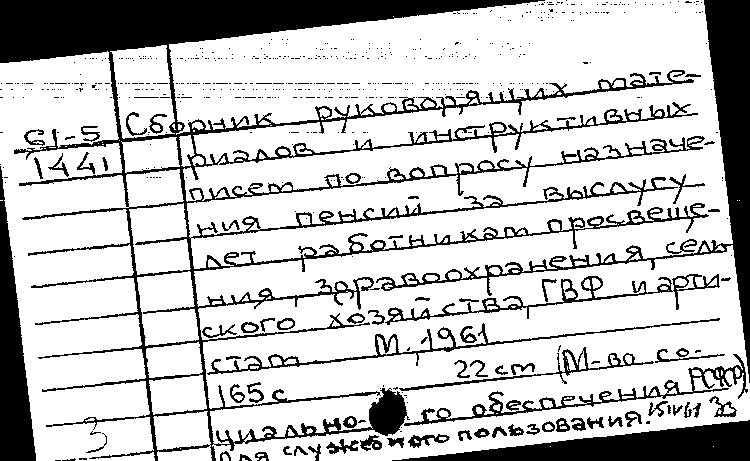 61-5 Сборник руководящих мате-
1441 риалов и инструктивных
писем по вопросу назначе-
ния пенсий за выслугу
лет работникам просвеще-
ния, здравоохранения, сель
ского хозяйства, ГВФ и арти-
стам. М., 1961
165 с 22 cm (М-во со-
циально го обеспечения РСФСР).
3 Для служебного пользования.